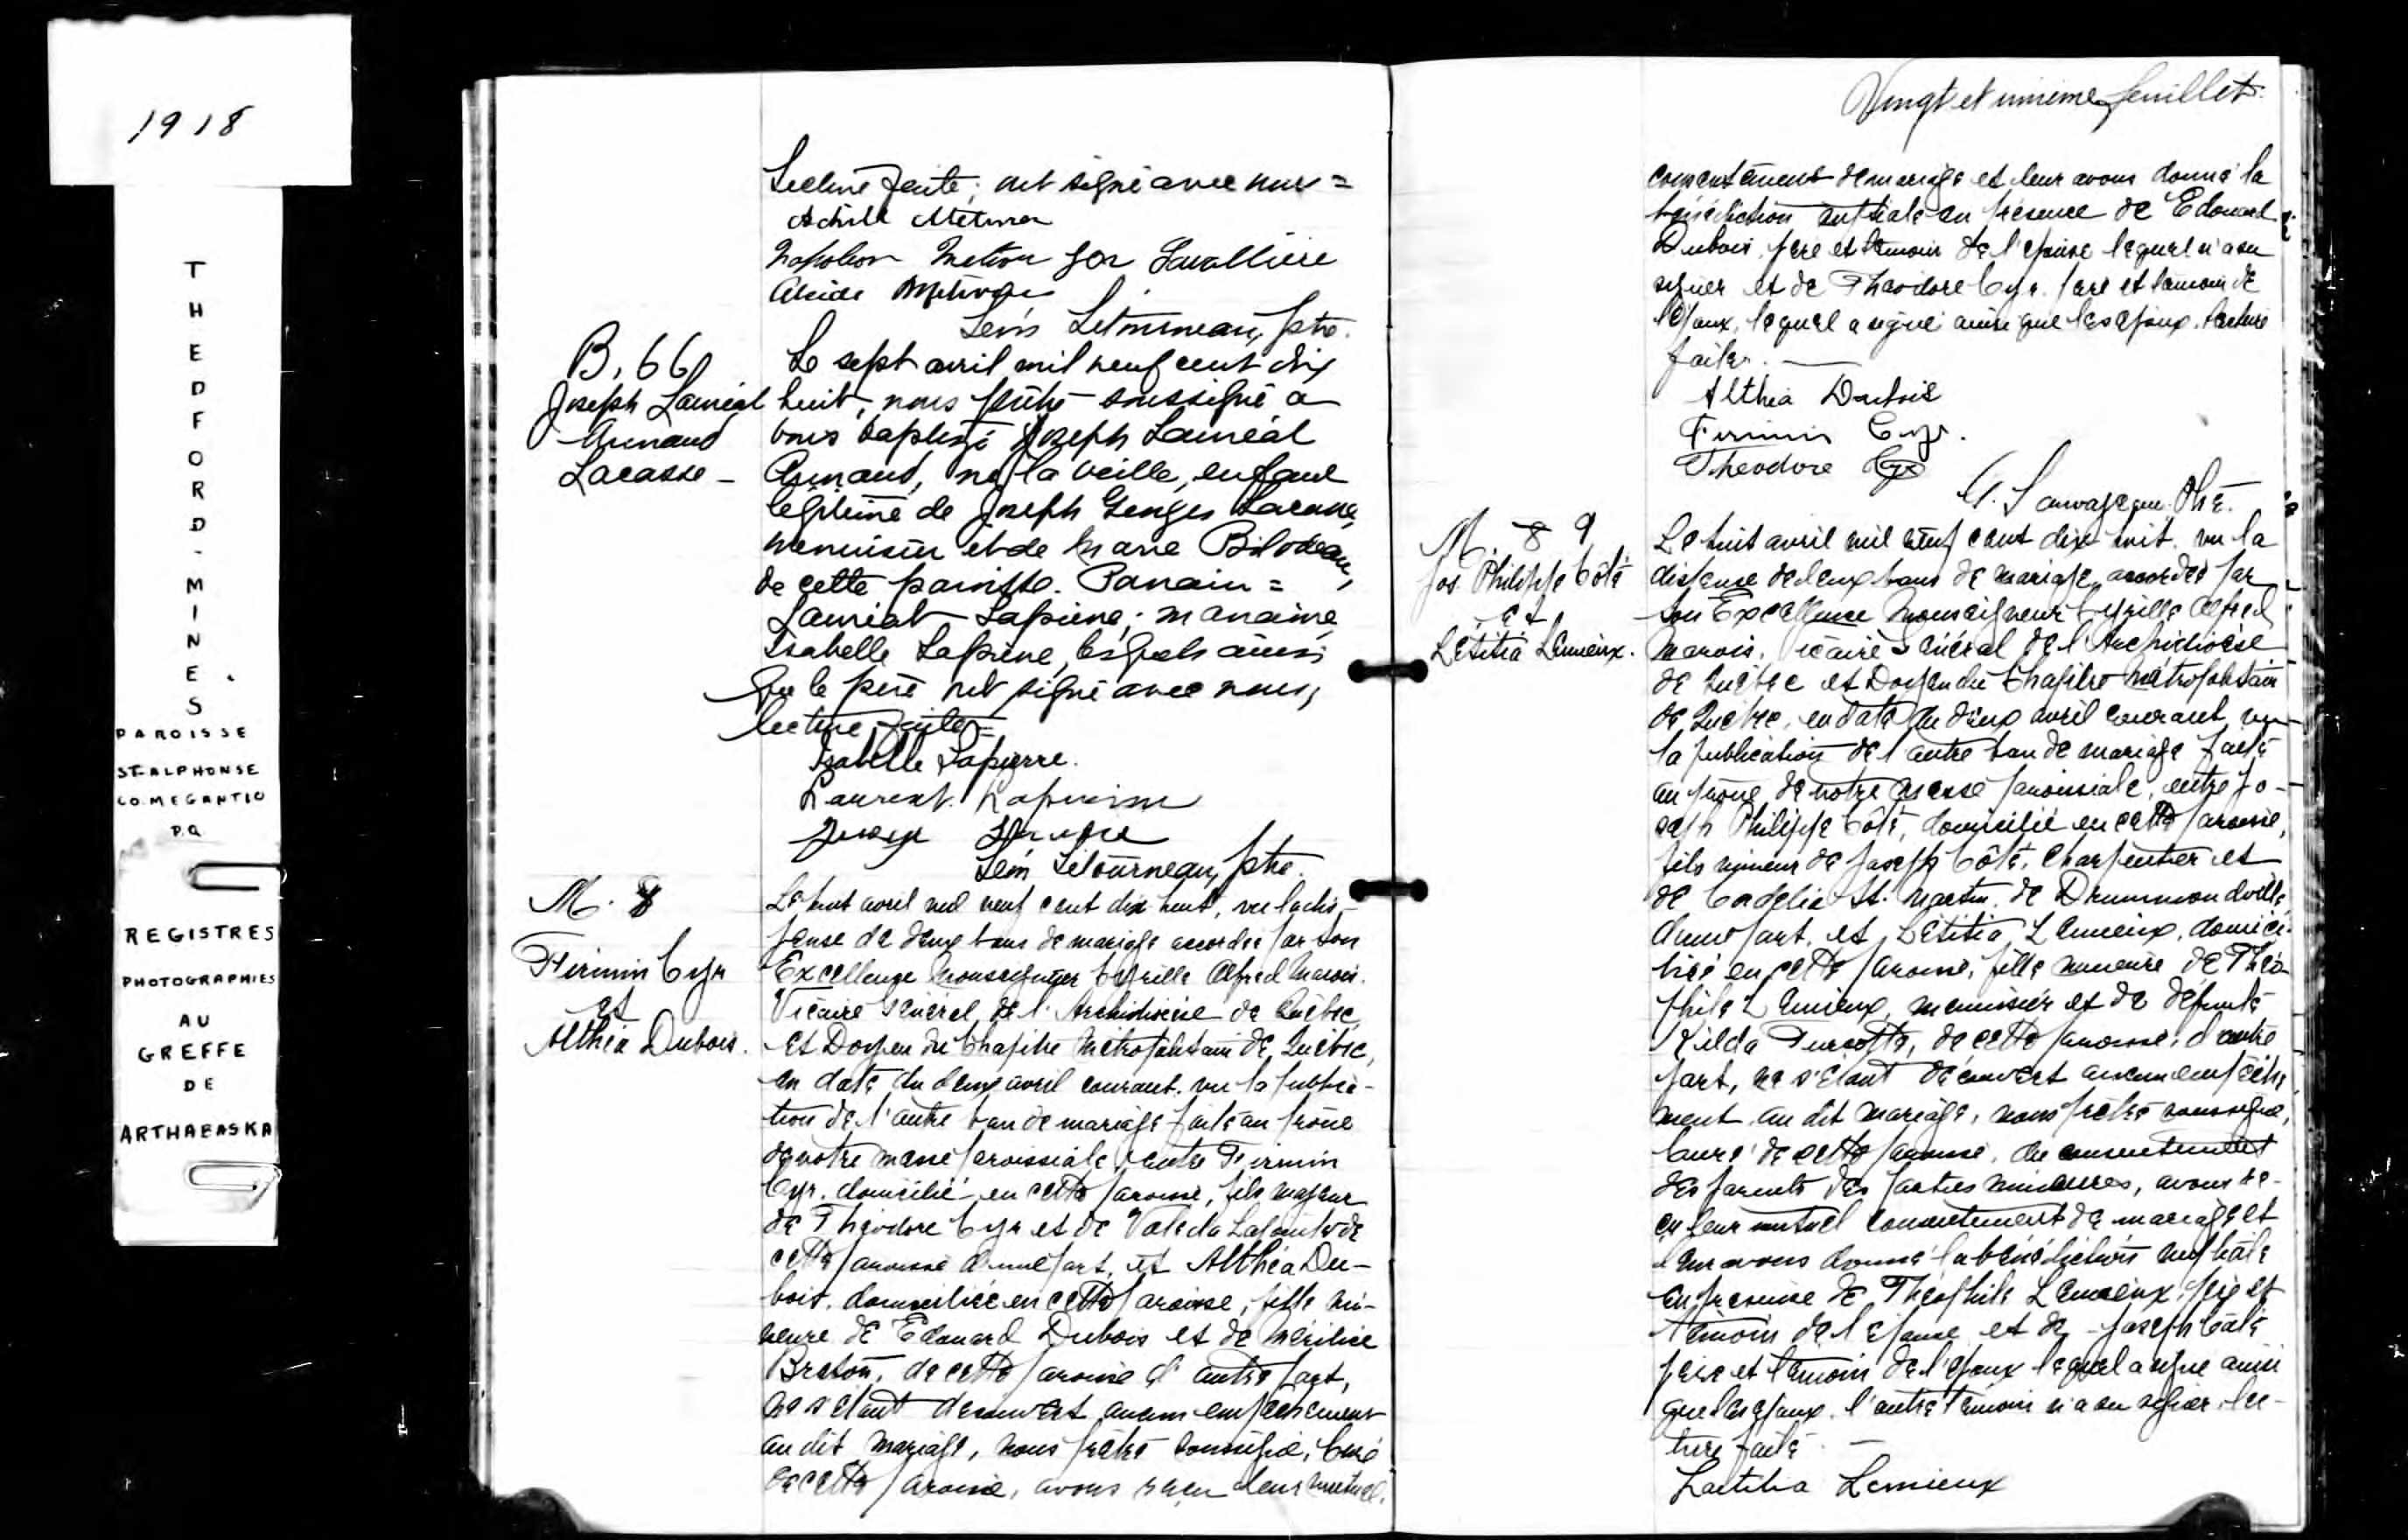 1918
THEDFORD-MINES.
PAROISSE
ST-ALPHONSE
CO. MEGANTIC
P.Q
REGISTRES
PHOTOGRAPHIES
AU
GREFFE
DE
ARTHABASKA
Lecture faite; ont signé avec nous =
Achille
Napoleon
Alcide
Létourneau, ptre.
B. 66
Joseph Lauréat
Armand
Lacasse -
Le sept avril mil neuf cent dix
huit, nous prêtre soussigné a
vons baptisé Joseph Lauréat
Armand, né la veille, enfant
légitime de Joseph Georges Lacasse,
menuisier et de Marie Bilodeau,
de cette paroisse. Parrain =
Lauréat Lapierre; marraine,
Isabelle Lapierre, lesquels ainsi
que le père ont signé avec nous,
lecture faite =
Isabelle Lapierre.
Laureat Lapierre
Létourneau, ptre.
M. 8
Firmin Cyr
et
Althéa Dubois.
Le huit avril mil neuf cent dix huit, vu la dis-
pense de deux bans de mariage accordée par Son
Excellence Monseigneur Cyrille Alfred Marois.
Vicaire Général de l'Archidiocèse de Québec
et Doyen du Chapitre Métropolitain de Québec,
en date du deux avril courant. vu la publica-
tion de l'autre ban de mariage faite au prône
de notre messe paroissiale, entre Firmin
Cyr. domicilié en cette paroisse, fils majeur
de Théodore Cyr et de Valeda Lapointe de
cette paroisse d'une part, et Althéa Du-
bois, domiciliée en cette paroisse, fille mi-
neure de Edouard Dubois et de
Breton, de cette paroisse d'autre part,
ne s'étant découvert aucun empêchement
au dit mariage, nous prêtre soussigné, Curé
de cette paroisse, avons reçu leur mutuel
Vingt et unième feuillet.
consentement de mariage et leur avons donné la
bénédiction nuptiale en présence de Edouard
Dubois, père et témoin de l'épouse lequel n'a su
signer et de Théodore Cyr. père et témoin de
l'époux, lequel a signé ainsi que les époux. Lecture
faite. —
Althéa Dubois
Firmin Cyr.
Theodore Cyr
Sauvageau. Ptre.
M. 8 9
Jos. Philippe Côté
et
Létitia Lemieux.
Le huit avril mil neuf cent dix huit. vu la
dispense de deux bans de mariage, accordée par
Son Excellence Monseigneur Cyrille Alfred
Marois. Vicaire Général de l'Archidiocèse
de Québec et Doyen du Chapitre Métropolitain
de Québec, en date du deux avril courant, vu
la publication de l'autre ban de mariage faite
au prône de notre messe paroissiale, entre Jo-
seph Philippe Côté, domicilié en cette paroisse,
fils mineur de Joseph Côté, charpentier et
de Cordélie St. Martin, de Drummondville,
d'une part, et Létitia Lemieux, domici-
liée en cette paroisse, fille mineure de Théo-
phile Lemieux, menuisier et de défunte
Kilda Turcotte, de cette paroisse, d'autre
part, ne s'étant découvert aucun empêche-
ment au dit mariage, nous prêtre soussigné,
Curé de cette paroisse, du consentement
des parents des parties mineures, avons re-
çu leur mutuel consentement de mariage et
leur avons donné la bénédiction nuptiale
en présence de Théophile Lemieux, père et
témoin de l'épouse et de Joseph Côté
père et témoin de l'époux lequel a signé ainsi
que les époux. l'autre témoin n'a su signer. lec-
ture faite. —
Laetitia Lemieux